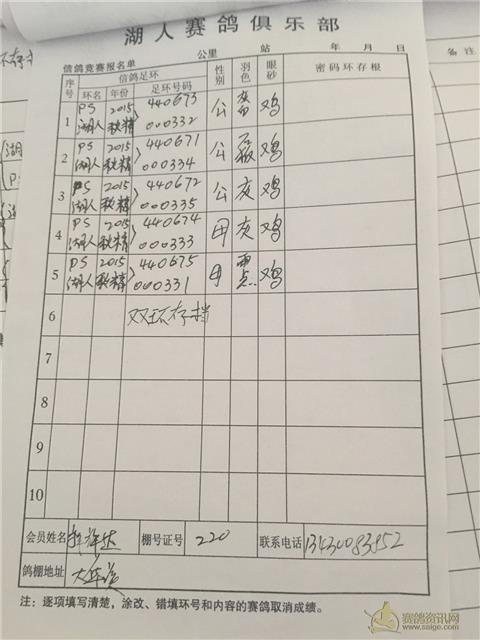 湖人赛鸽俱乐部
信鸽竞赛报名单 公里 站 年 月 日
序号 信鸽足环 性别 羽色 眼砂 密码环存根
环名 年份 足环号码
备注
1 PS 2015 440673 公 鸡
湖人 秋精 000332
2 PS 2015 440671 公 鸡
湖人 秋精 000334
3 PS 2015 440672 公 灰 鸡
湖人 秋精 000335
4 PS 2015 440674 母 灰 鸡
湖人 秋精 000333
5 PS 2015 440675 母 雨点 鸡
湖人 秋精 000331
6 双环存档
7
8
9
10
会员姓名 棚号证号 220 联系电话 13430083952
鸽棚地址
注:逐项填写清楚,涂改、错填环号和内容的赛鸽取消成绩。
赛鸽资讯网
www.saige.com